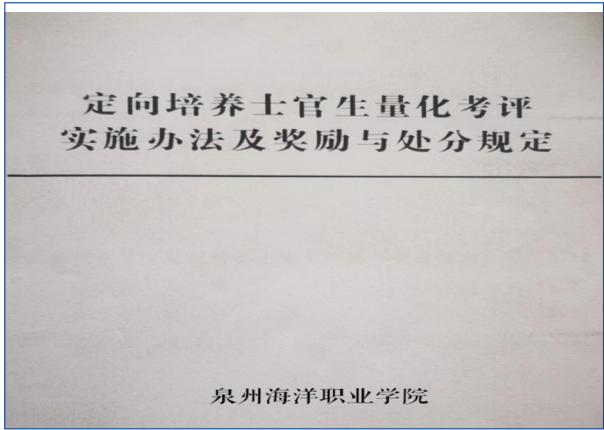 定向培养士官生量化考评
实施办法及奖励与处分规定
泉州海洋职业学院